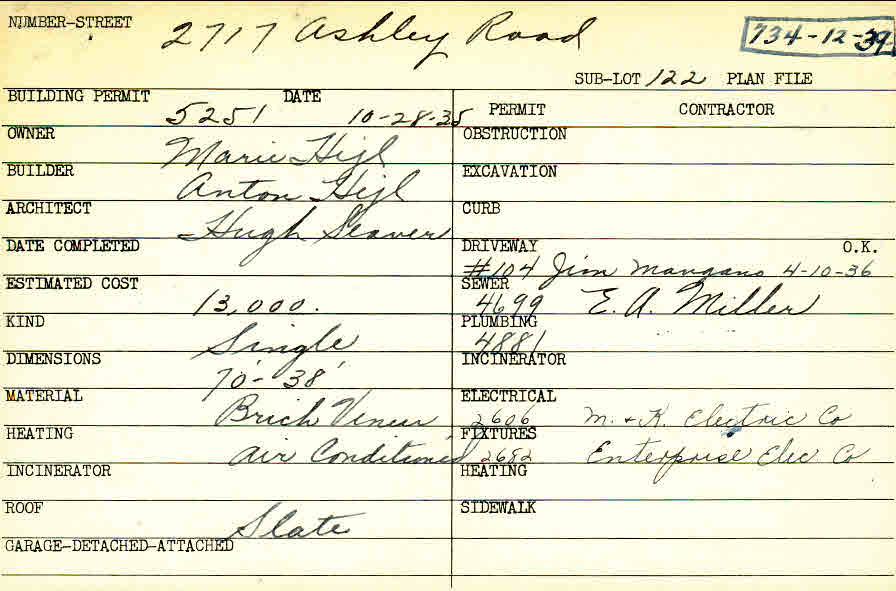 NUMBER-STREET 2717 Ashley Road 734-12-39
SUB-LOT 122 PLAN FILE
BUILDING PERMIT 5251 DATE 10-28-35
PERMIT CONTRACTOR
OWNER Marie Hijl
OBSTRUCTION
BUILDER Anton Hijl
EXCAVATION
ARCHITECT Hugh Seaver
CURB
DATE COMPLETED
DRIVEWAY O.K.
#104 Jim Mangano 4-10-36
ESTIMATED COST 13,000.
SEWER 4699 E. A. Miller
KIND Single
PLUMBING 4881
DIMENSIONS 70'- 38'
INCINERATOR
MATERIAL Brick Veneer
ELECTRICAL 2606 M. & K. Electric Co
HEATING Air Conditioned
FIXTURES 2652 Enterprise Elec Co
INCINERATOR
HEATING
ROOF Slate
SIDEWALK
GARAGE-DETACHED-ATTACHED